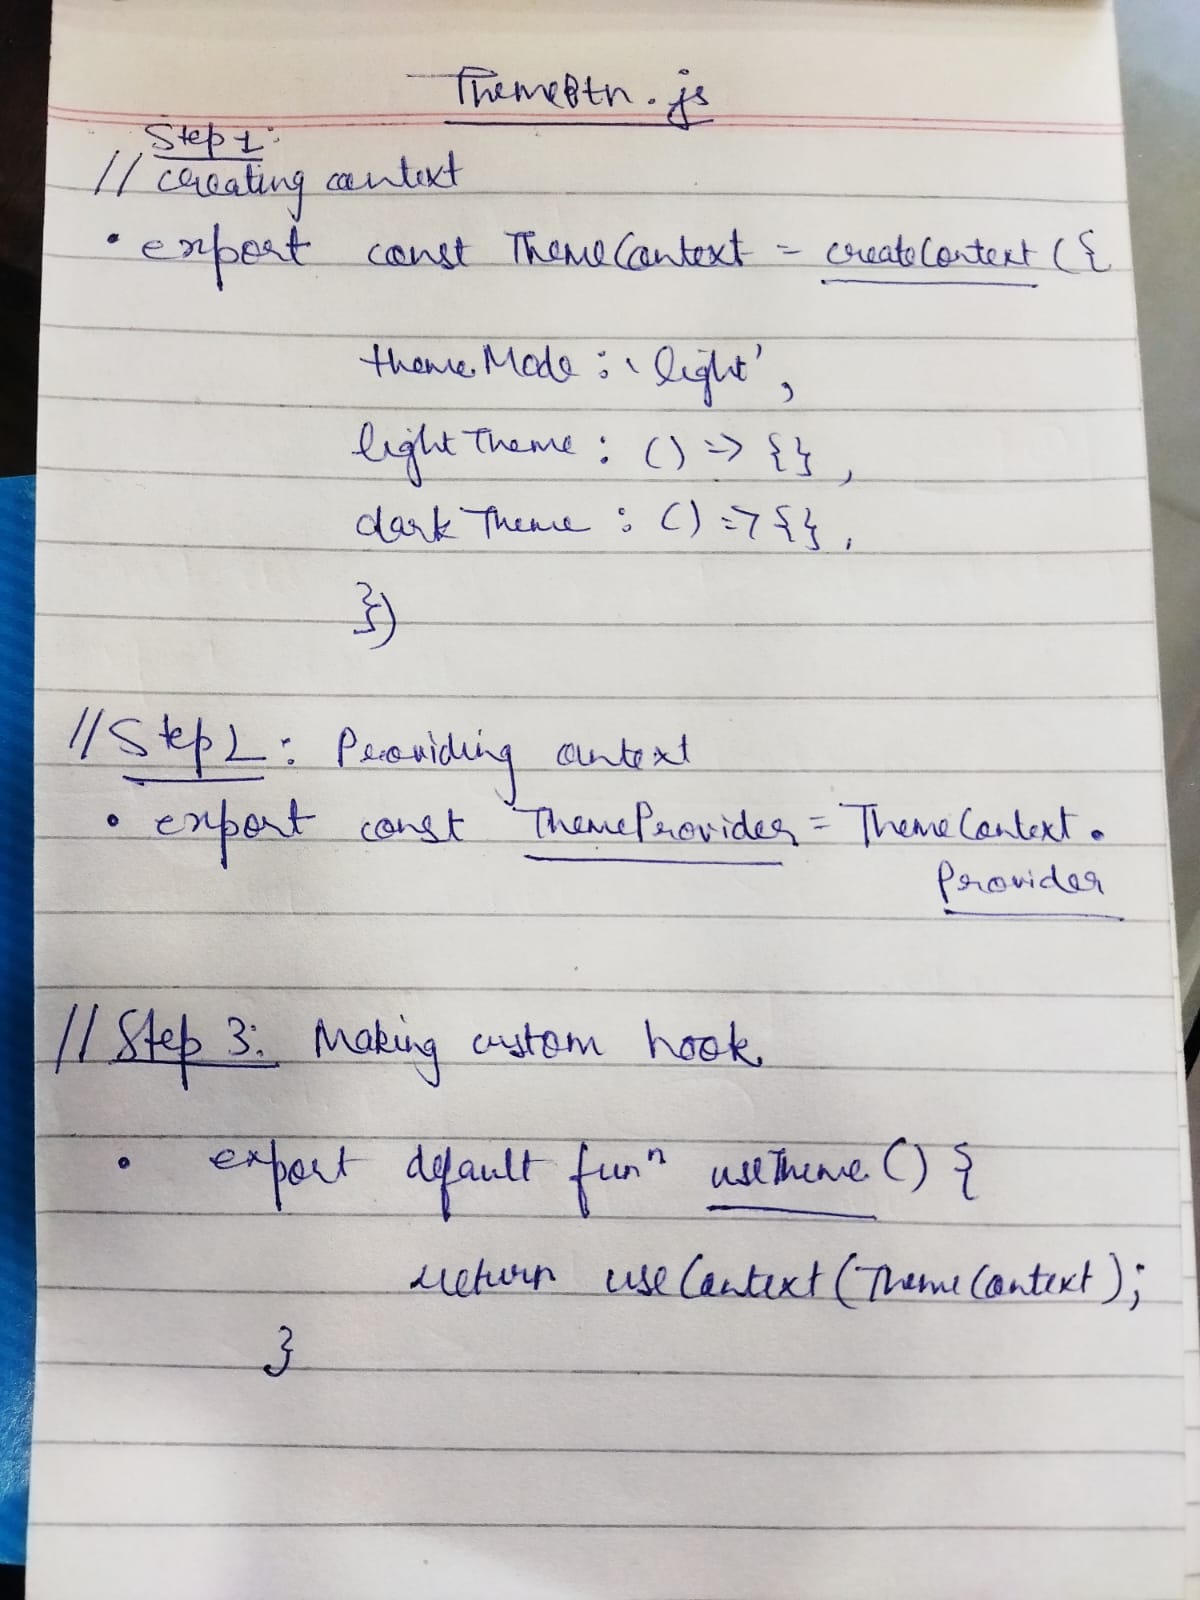 ThemeBtn.js
Step 1:
// creating context
• export const ThemeContext = createContext({
themeMode : 'light',
lightTheme : () => {},
darkTheme : () => {},
})
// Step 2 : Providing context
• export const ThemeProvider = ThemeContext.
Provider
// Step 3: Making custom hook
• export default funⁿ useTheme () {
return useContext(ThemeContext);
}